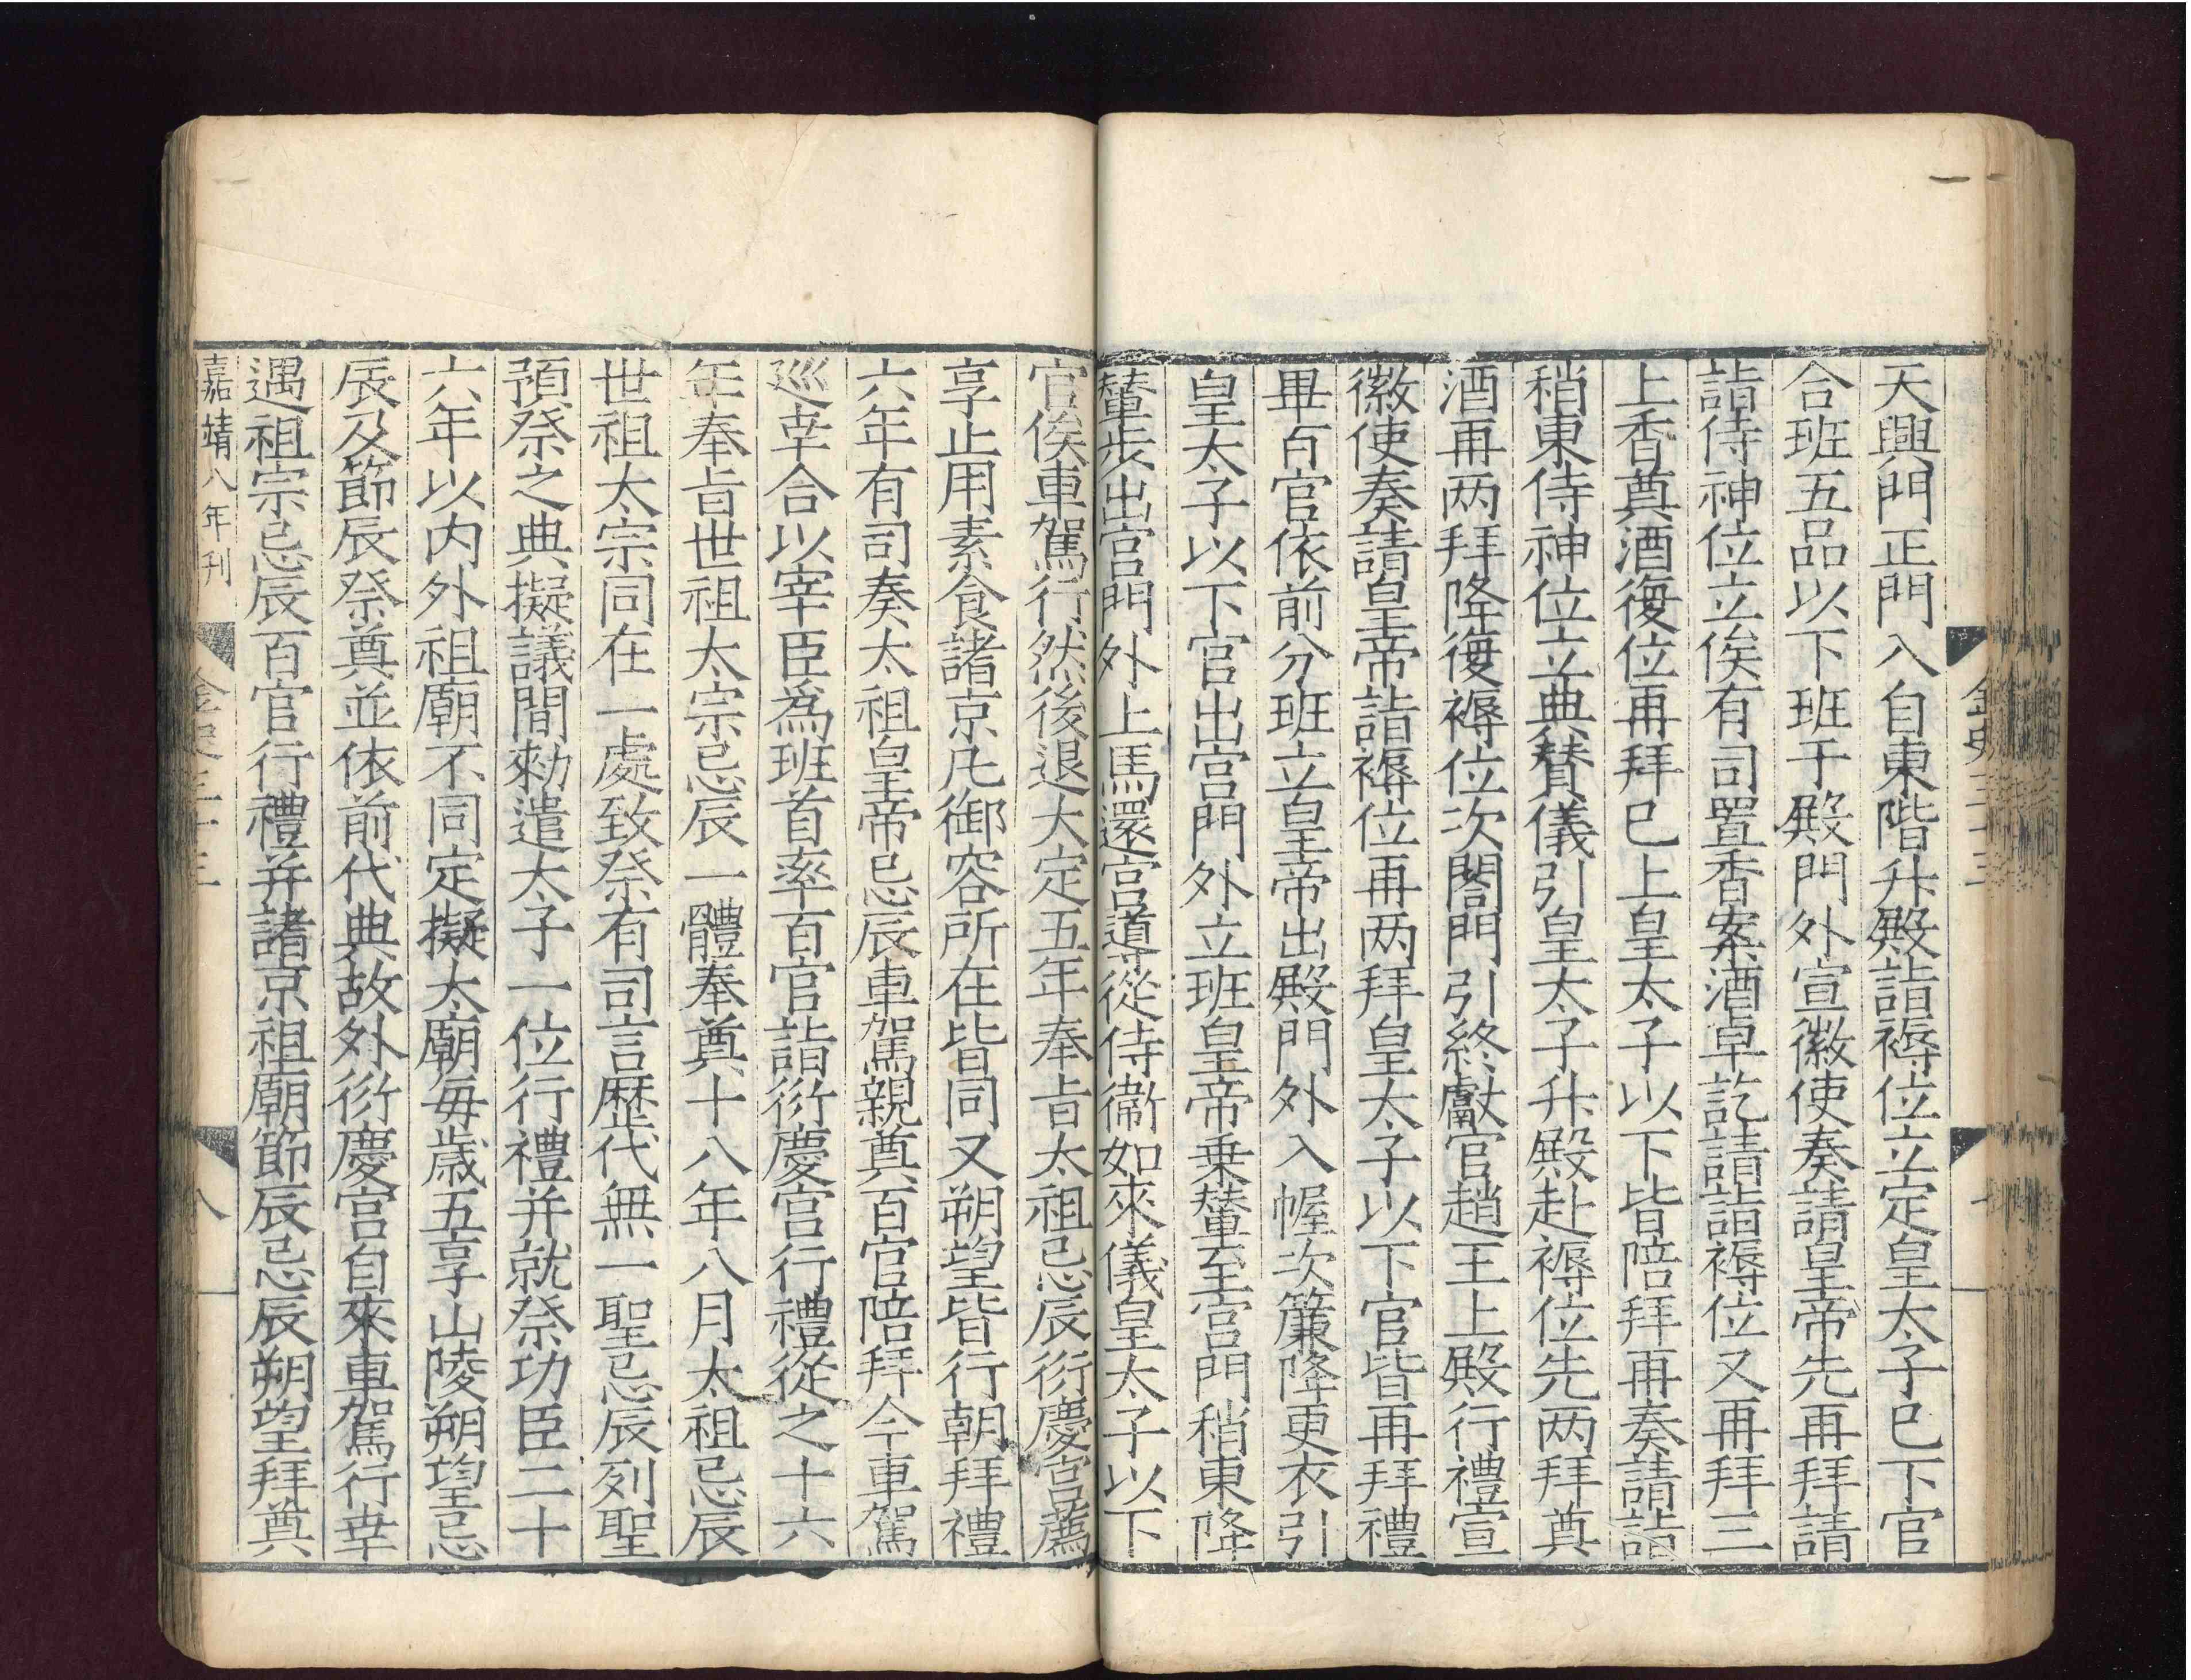 天興門正門入自東階升殿詣褥位立定皇太子已下官
合班五品以下班于殿門外宣徽使奏請皇帝先再拜請
詣侍神位立俟有司置香案酒卓訖請詣褥位又再拜三
上香奠酒復位再拜已上皇太子以下皆陪拜再奏請詣
稍東侍神位立典贊儀引皇太子升殿赴褥位先两拜奠
酒再两拜降復褥位次閤門引終獻官趙王上殿行禮宣
徽使奏請皇帝詣褥位再两拜皇太子以下官皆再拜禮
畢百官依前分班立皇帝出殿門外入幄次簾降更衣引
皇太子以下官出宫門外立班皇帝乗輦至宫門稍東降
輦步出宫門外上馬還宫導從侍衞如來儀皇太子以下
官俟車駕行然後退大定五年奉旨太祖忌辰衍慶宫薦
享止用素食諸京凡御容所在皆同又朔望皆行朝拜禮
六年有司奏太祖皇帝忌辰車駕親奠百官陪拜今車駕
巡幸合以宰臣爲班首率百官詣衍慶宫行禮從之十六
年奉旨世祖太宗忌辰一體奉奠十八年八月太祖忌辰
世祖太宗同在一處致祭有司言歴代無一聖忌辰列聖
預祭之典擬議間勑遣太子一位行禮并就祭功臣二十
六年以内外祖廟不同定擬太廟每歲五享山陵朔望忌
辰及節辰祭奠並依前代典故外衍慶宫自來車駕行幸
遇祖宗忌辰百官行禮并諸京祖廟節辰忌辰朔望拜奠
嘉靖八年刊 金史三十三 八